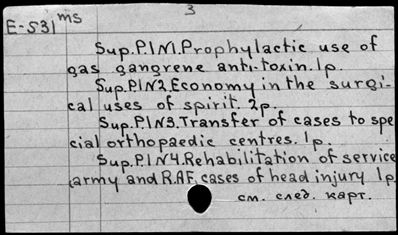 3
E-531 ms
Sup.P.1N1.Prophylactic use of
gas gangrene anti-toxin.1p.
Sup.P.1N2.Economy in the surgi-
cal uses of spirit. 2p.
Sup.P.1N3.Transfer of cases to spe
cial orthopaedic centres.1p.
Sup.P.1N4.Rehabilitation of service
(army and R.A.F. cases of head injury 1p.
см. след. карт.